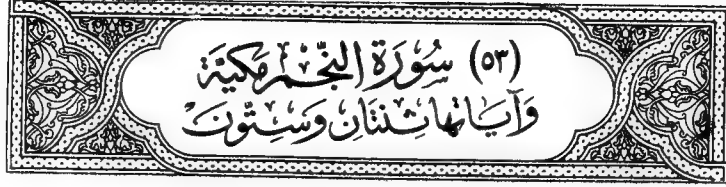 (٥٣) سُورَةُ النَّجْمِ مَكِيَّة
وَآيَاتُهَا ثِنْتَانِ وَسِتُّونَ